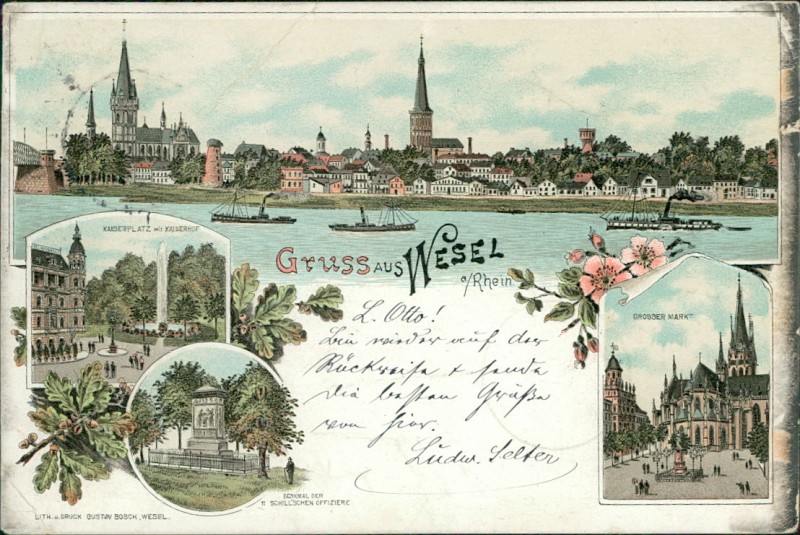 KAISERPLATZ MIT KAISERHOF
Gruss aus Wesel
a/Rhein
GROSSER MARKT
L. Otto!
Bin wieder auf der
Rückreise + sende
Die besten Grüße
von hier.
Ludw. Selter
DENKMAL DER
11 SCHILL'SCHEN OFFIZIERE
LITH. u. DRUCK GUSTAV BOSCH, WESEL.